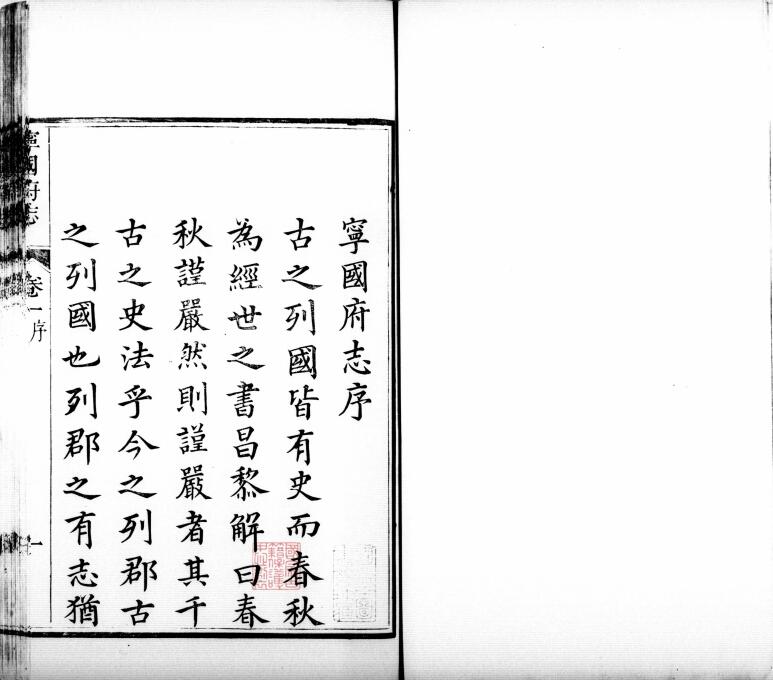 寧國府志序
古之列國皆有史而春秋
為經世之書昌黎解曰春
秋謹嚴然則謹嚴者其千
古之史法乎今之列郡古
之列國也列郡之有志猶
寧國府志
卷一序
一